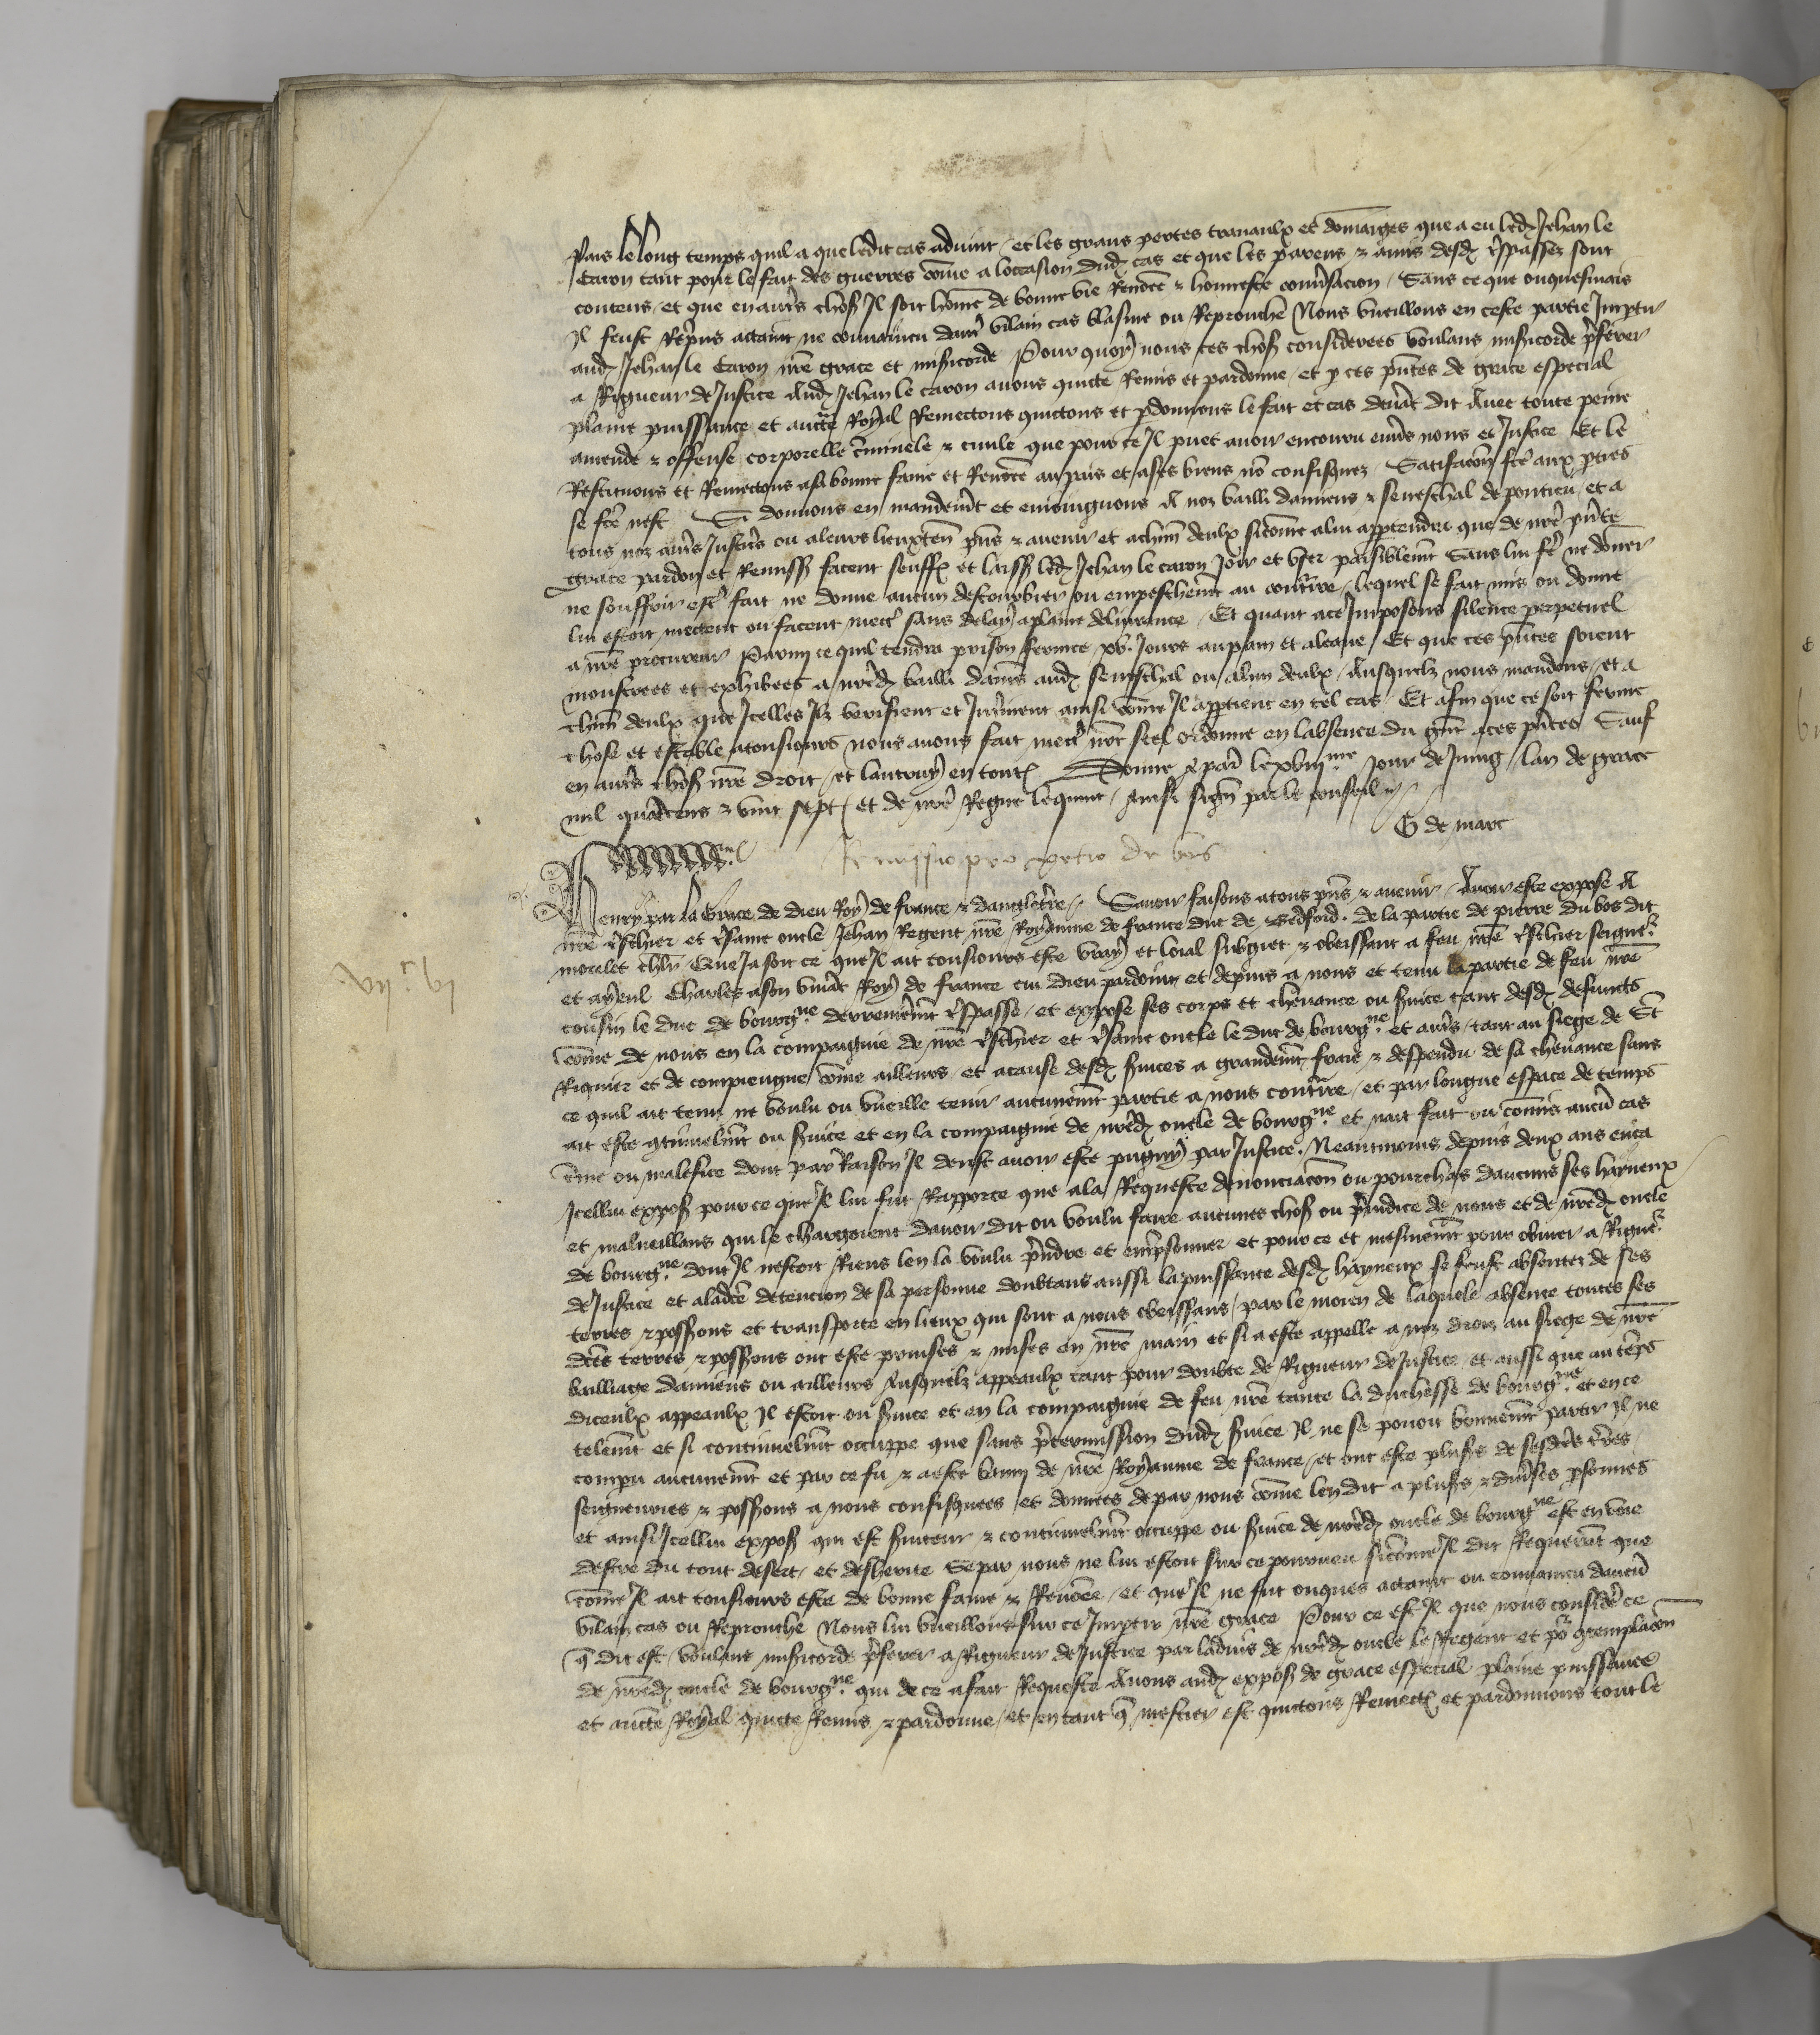 Pais le long temps quil a que ledit cas advint et les grans pertes travaulx et dommaiges que a eu led Jehan le
Caron tant pour le fait des guerres come a loccasion dud cas et que les parens & amis desd trspassez sont
contens et que en autrs chos Il soit home de bonne vie Renomee & honneste conversacion Sans ce que onquesmais
Il feust Repris attaint ne convaincu dautr vilain cas blasme ou Reprouche Nous vueillons en ceste partie Impartir
aud Jehan le Caron nre grace et misericorde Pour quoy nous ces chos considerees voulans misericorde preferer
a Rigueur de Justice Aud Jehan le caron avons quicte Remis et pardonne et p ces pntes de grace especial
plaine puissance et aucte Royal Remectons quictons et pdonnons le fait et cas devant dit Avec toute peine
amende & offense corporelle criminele & civile que pour ce Il puet avoir encouru envers nous et Justice Et le
Restituons et Remectons a sa bonne fame et Renomee au pais et a ses biens no confisquez Satisfacion fcte aux pties
se fcte nest Si donnons en mandement et enioingnons A noz bailli damiens & seneschal de pontieu et a
tous noz autrs Justiciers ou a leurs lieuxten pns & avenir et a chun deulx sicome a lui appartendra que de nre pnte
grace pardon et Remiss facent souffr et laiss led Jehan le caron Joir et user paisiblement Sans lui fe ne donner
ne souffrir estr fait ne donne aucun destourbier ou empeschement au contraire lequel se fait mis ou donne
lui estoit mectent ou facent mectr sans delay a plaine delivrance Et quant a ce Imposons silence perpetuel
a nre procureur Parmy ce quil tendra prison fermee xv. Jours au pain et a leaue Et que ces pntes soient
monstrees et exhibees a nred bailli damiens aud seneschal ou a lun deulx Ausquelz nous mandons et a
chun deulx que Icelles Ilz verifient et Interinent ainsi come Il appartient en tel cas Et afin que ce soit ferme
chose et estable a tousiours nous avons fait mectr nre seel ordonne en labsence du grant a ces pntes Sauf
en autrs chos nre droit et lautruy en tout Donne a paris le xviiime Jour de Juing lan de grace
mil quatrecens & vint sept et de nre Regne le quint Ainsi signe par le conseil
G de marc
Remissio pro petro du bos
Henry par la Grace de Dieu Roy de france & dangleterre Savoir faisons a tous pns & avenir Avoir este expose A
nre trschier et trsame oncle Jehan Regent nre Royaume de france duc de Bedford de la partie de pierre du bos dit
morlet chlr Que Ja soit ce que Il ait tousiours este vray et loial subgiet & obeissant a feu nre trschier seigneur
et ayeul Charles a son vivant Roy de france cui Dieu pardoint et depuis a nous et tenu la partie de feu nre
cousin le duc de bourgne derrenierement trspasse et expose ses corps et chevance ou service tant desd defuncts
come de nous en la compaignie de nre trschier et trsame oncle le duc de bourgne et autrs tant au siege de St
Riquier et de compiengne come ailleurs et a cause desd services a grandement fraie & despendu de sa chevance sans
ce quil ait tenu ne voulu ou vueille tenir aucunement partie a nous contraire et par longue espace de temps
ait este continuelment ou service et en la compaignie de nred oncle de bourgne et nait fait ou comis aucun cas
crime ou malefice dont par Raison Il deust avoir este pugny par Justice. Neantmoins depuis deux ans enca
Icellui expos pour ce que Il lui fut Rapporte que a la Requeste denonciacion ou pourchas daucuns ses hayneux
et malveillans qui le chargoient davoir dit ou voulu faire aucunes chos ou preiudice de nous et de nred oncle
de bourgne dont Il nestoit Riens len la voulu prendre et emprisonner et pour ce et mesmement pour obvier a Rigueur
de Justice et a ladce detencion de sa personne doubtans aussi la puissance desd hayneux se feust absentez de ses
terres & possons et transporte en lieux qui sont a nous obeissans par le moien de laquele absence toutes ses
dces terres & possons ont este prinses & mises en nre main et si a este appelle a noz droiz au siege de nre
bailliage damiens ou ailleurs Ausquelz appeaulx tant pour doubte de Rigueur de Justice et aussi que au temps
diceulx appeaulx Il estoit ou service et en la compaignie de feu nre tante la duchesse de bourgne et en ce
telement et si continuelment occuppe que sans pretermission dud service Il ne se povoit bonnement partir Il ne
compu aucunement et par ce fu & a este banny de nre Royaume de france et ont este plusrs de sesdces terres
seigneuries & possons a nous confisquees et donnees de par nous come len dit a plusrs & diverses psonnes
et ainsi Icellui expos qui est serviteur & continuelment occuppe ou service de nred oncle de bourgne est en voie
destre du tout desert et desherite Se par nous ne lui estoit sur ce pourveu sicome Il dit Requerant que
come Il ait tousiours este de bonne fame & Renomee et que Il ne fut onques attaint ou convaincu daucun
vilain cas ou Reprouche Nous lui vueillons sur ce Impartir nre grace Pour ce est Il que nous considere ce
q dit est voulans misericorde preferer a Rigueur de Justice par ladvis de nred oncle le Regent et por contemplacion
de nred oncle de bourgne qui de ce a fait Requeste Avons aud expos de grace especial plaine puissance
et aucte Royal quicte Remis & pardonne et en tant q mestier est quictons Remect et pardonnons tout le